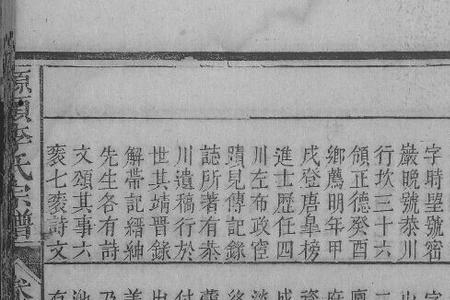 字時朢號密
巖晚號泰川
行坎三十六
領正德癸酉
鄉薦明年甲
戌登唐臯榜
進士歷任四
川左布政宦
蹟見傳記錄
誌所著有泰
川遺稿行於
世其靖晋錄
解帶記縉紳
先生各有詩
文頌其事六
袠七袠詩文
李氏宗譜